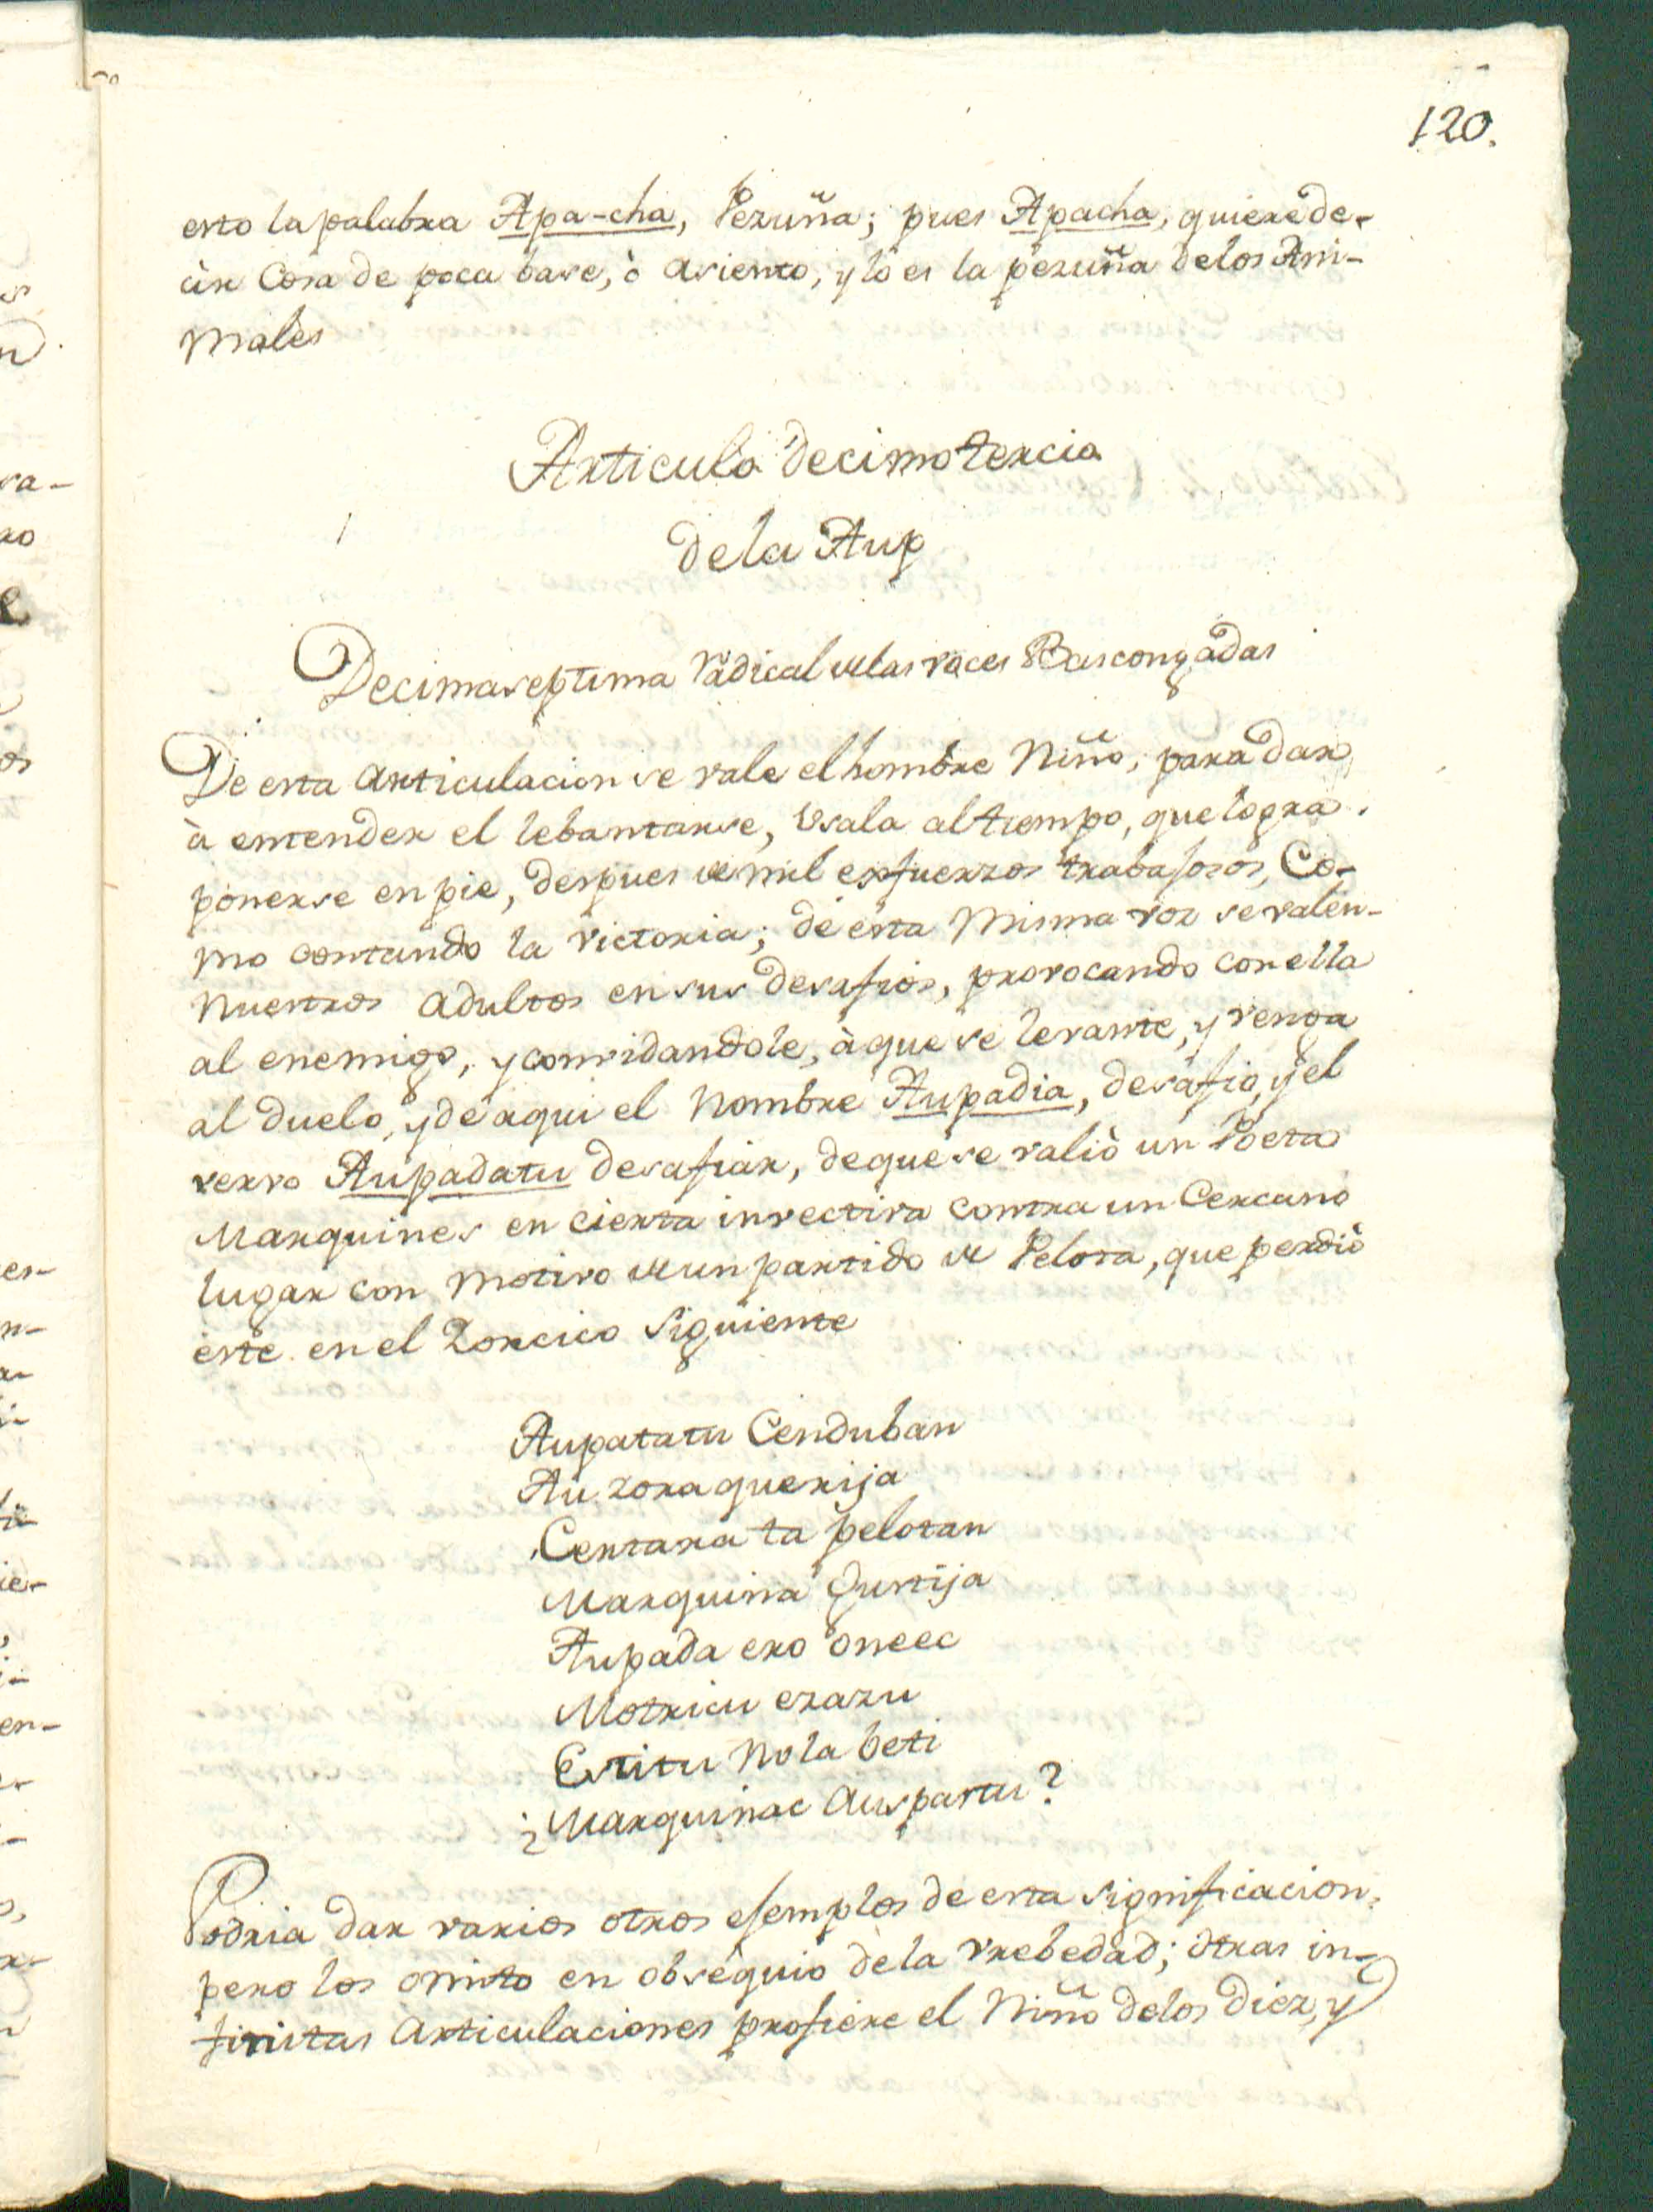 120.
esto la palabra Apa-cha, Pezuña; pues Apacha, quiere de-
cir Cosa de poca base, ò asiento, y lo es la pezuña delos Ani-
males
Articulo decimotercio
de la Aup
Decimaseptima radical de las voces Bascongadas
De esta articulacion se vale el hombre Niño, para dar
à entender el lebantarse, Vsala al tiempo, que logra
ponerse en pie, despues de mil esfuerzos trabajosos, Co-
mo contando la victoria; de esta Misma voz se valen
Nuestros adultos en sus desafios, provocando con ella
al enemigo, y convidandole, à que se levante, y venga
al duelo, y de aqui el Nombre Aupadia, desafio, y el
vervo Aupadatu desafiar, de que se valiò un Poeta
Marquines en cierta invectiva contra un Cercano
lugar con Motivo de un partido de Pelota, que perdiò
este en el Zorcico siguiente
Aupatatu Cenduban
Auzoraquerija
Centara ta pelotan
Marquina Gustija
Aupada ero oneec
Motricu ezazu
Estitu Nola beti
¿Marquinac Auspartu?
Podria dar varios otros ejemplos de esta significacion,
pero los omito en obsequio de la vrebedad; otras in-
finitas articulaciones profiere el Niño delos diez, y